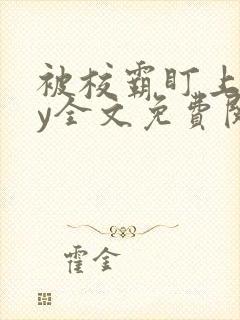 被校霸盯上
y全文免費閱
霍金